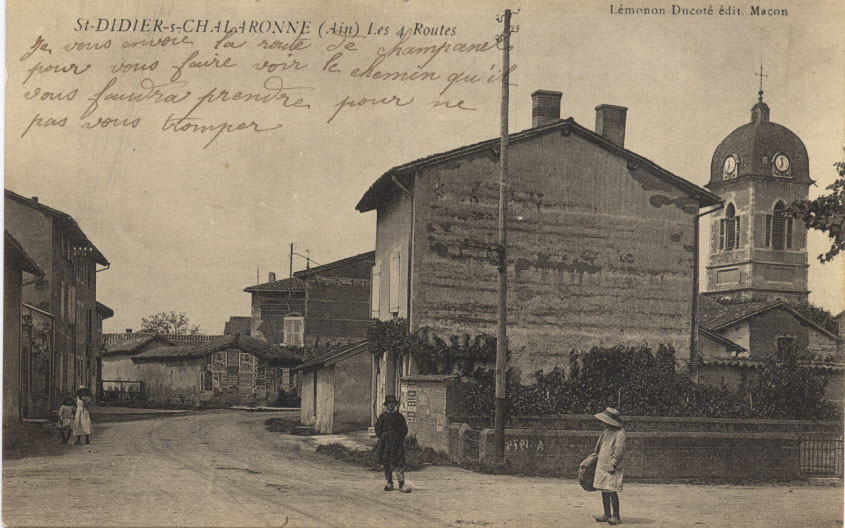 St-DIDIER-s-CHALARONNE (Ain) Les 4 Routes
Lémonon Ducoté édit. Macon
Je vous envoie la route de champanel
pour vous faire voir le chemin qu'il
vous faudra prendre pour ne
pas vous tromper